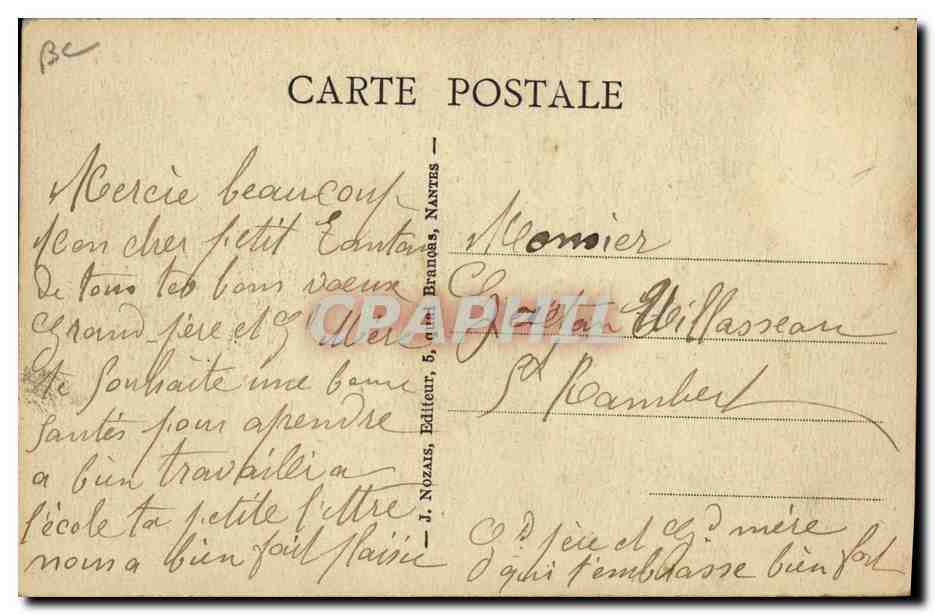 BC
CARTE POSTALE
Mercie beaucoup
Mon cher petit
de tous tes bons vœux
Grand père et Gd Mère
te Souhaite une bonne
Santés pour aprendre
a bien travailli a
l'école ta petite l'ettre
nous a bien fait plaisie
J. NOZAIS, Editeur, 5, quai Brancas, NANTES
CPAPHIL
Monsier
Gaëtan Villasseau
St Rambert
Gd père et Gd mère
qui t'embrasse bien fort